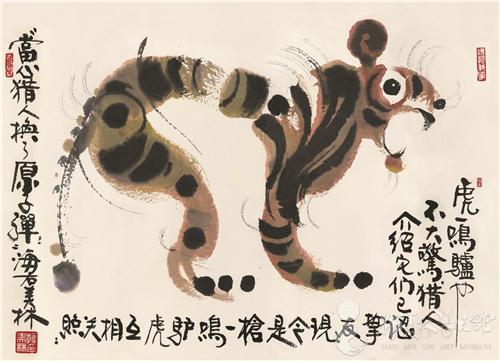 虎一鳴驢也
不大驚猎人
介绍它们已
認摯友現今是槍一鳴驴虎互相关照
當心猎人换了原子彈
海右美林
HAN MEI LIN ART MUSEUM